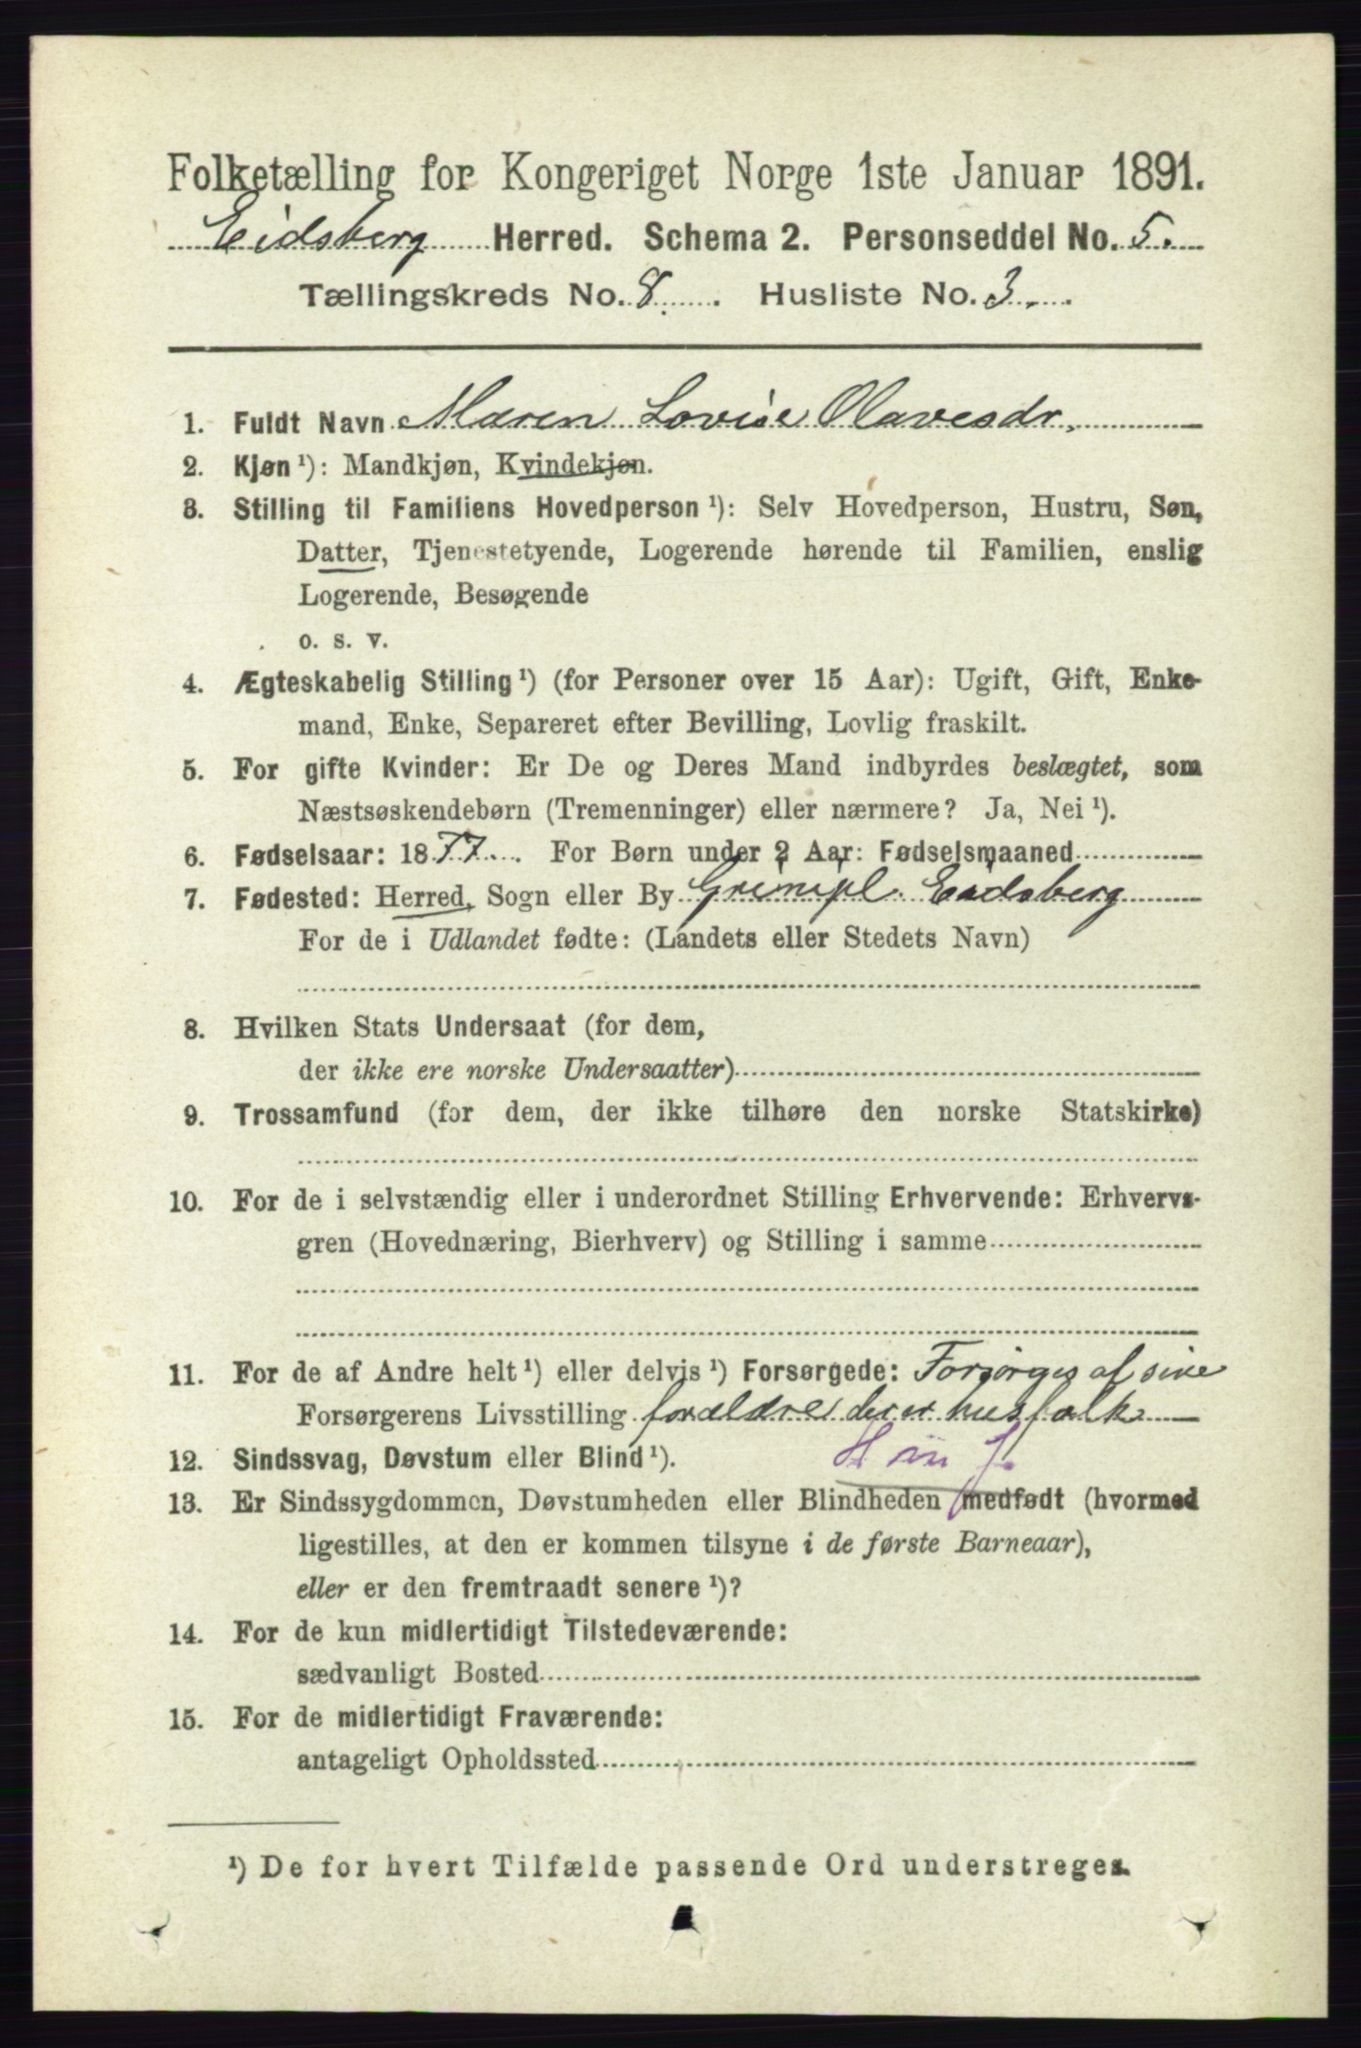 Folketælling for Kongeriget Norge 1ste Januar 1891.
Eidsberg Herred. Schema 2. Personseddel No. 5.
Tællingskreds No. 8. Husliste No. 3.
1. Fuldt Navn Maren Lovise Olavesdr.
2. Kjøn ¹): Mandkjøn, Kvindekjøn.
3. Stilling til Familiens Hovedperson ¹): Selv Hovedperson, Hustru, Søn,
Datter, Tjenestetyende, Logerende hørende til Familien, enslig
Logerende, Besøgende
o. s. v.
4. Ægteskabelig Stilling ¹) (for Personer over 15 Aar): Ugift, Gift, Enke-
mand, Enke, Separeret efter Bevilling, Lovlig fraskilt.
5. For gifte Kvinder: Er De og Deres Mand indbyrdes beslægtet, som
Næstsøskendebørn (Tremenninger) eller nærmere? Ja, Nei ¹).
6. Fødselsaar: 1877. For Børn under 2 Aar: Fødselsmaaned
7. Fødested: Herred, Sogn eller By Eidsberg
For de i Udlandet fødte: (Landets eller Stedets Navn)
8. Hvilken Stats Undersaat (for dem,
der ikke ere norske Undersaatter)
9. Trossamfund (for dem, der ikke tilhøre den norske Statskirke)
10. For de i selvstændig eller i underordnet Stilling Erhvervende: Erhvervs-
gren (Hovednæring, Bierhverv) og Stilling i samme
11. For de af Andre helt ¹) eller delvis ¹) Forsørgede: Forsørges af sine
Forsørgerens Livsstilling forældre der er husfolk
12. Sindssvag, Døvstum eller Blind ¹).
13. Er Sindssygdommen, Døvstumheden eller Blindheden medfødt (hvormed
ligestilles, at den er kommen tilsyne i de første Barneaar),
eller er den fremtraadt senere ¹)?
14. For de kun midlertidigt Tilstedeværende:
sædvanligt Bosted
15. For de midlertidigt Fraværende:
antageligt Opholdssted
¹) De for hvert Tilfælde passende Ord understreges.